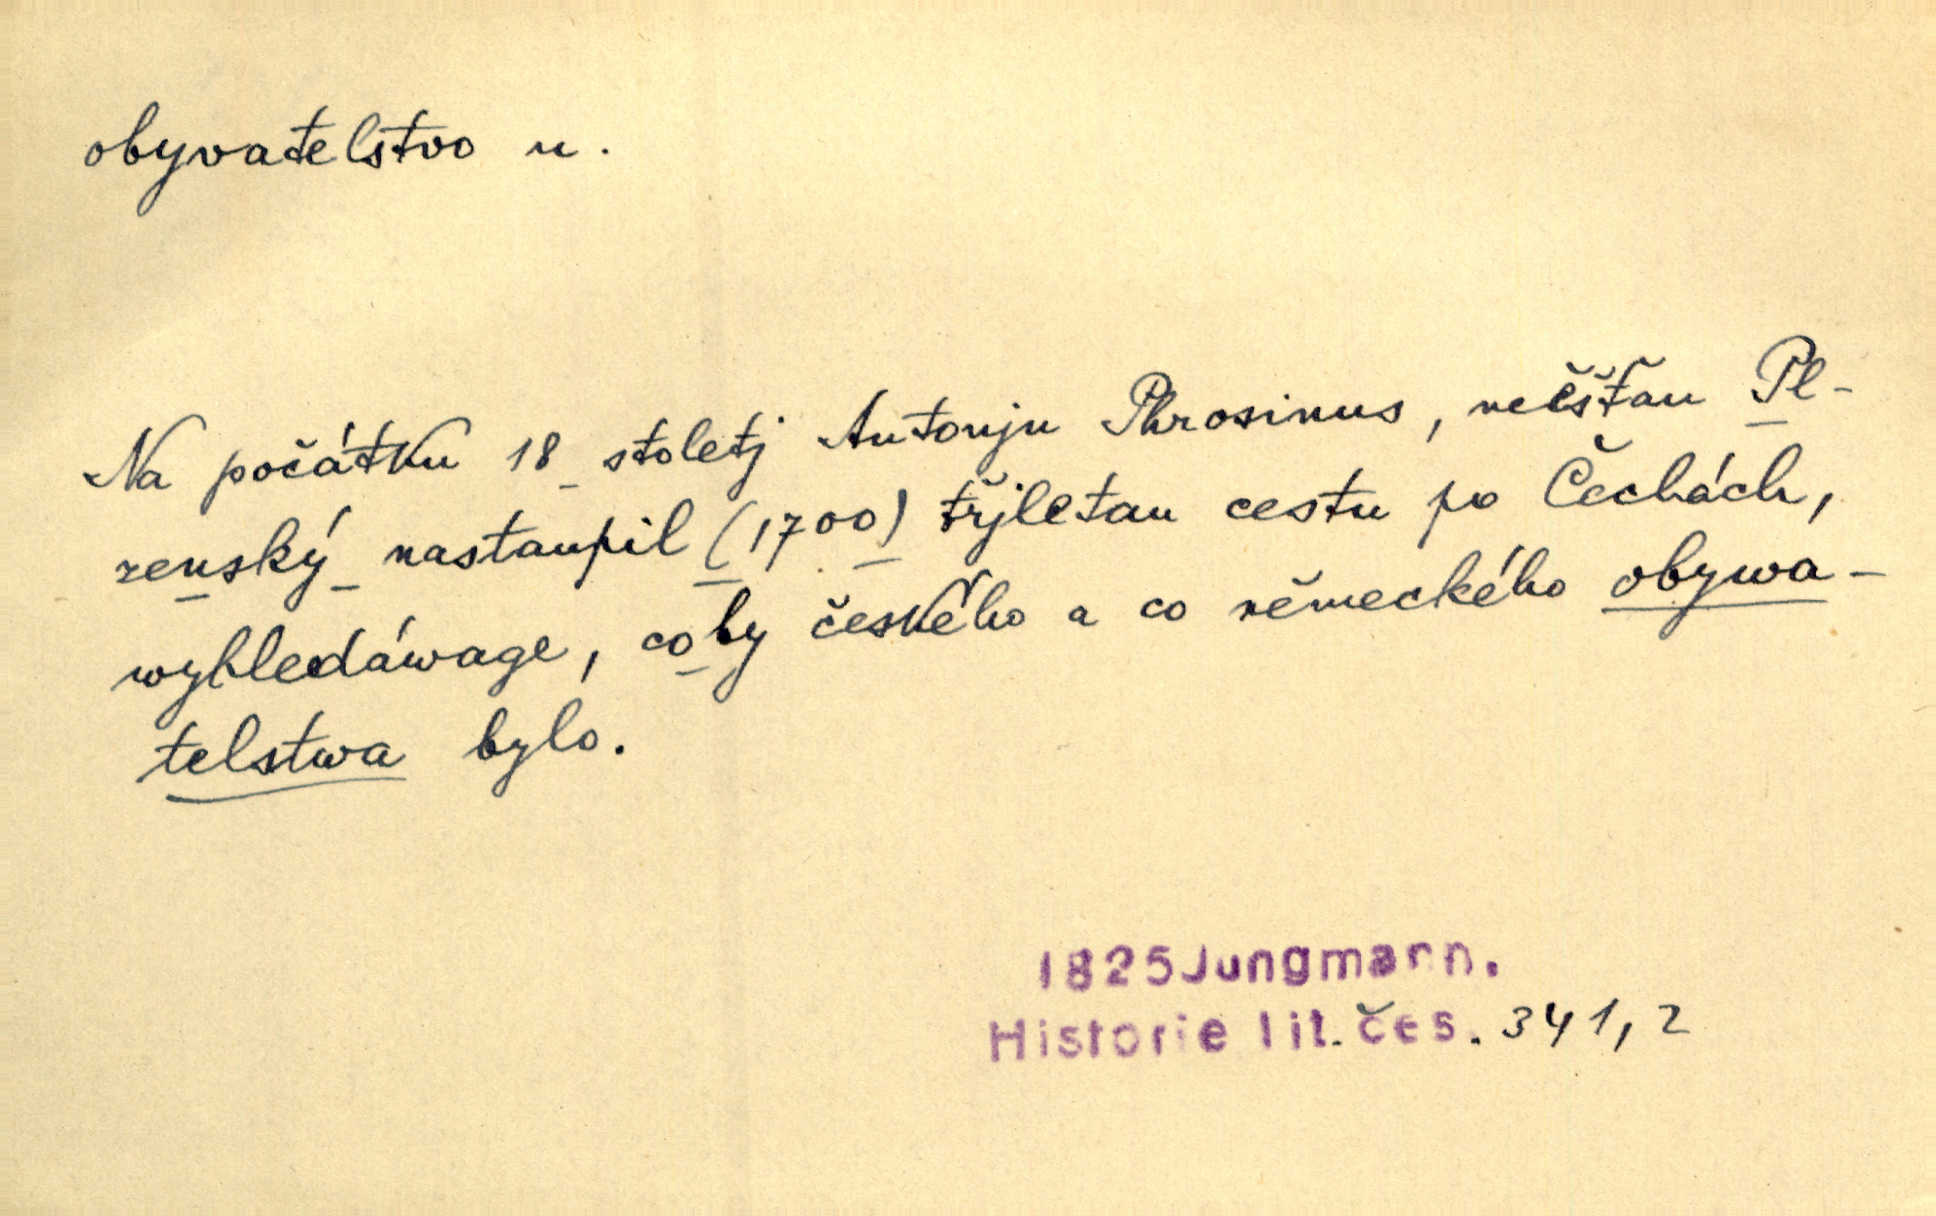 obyvatelstvo n.
Na počátku 18 stoletj Antonjn Phrosinus, měšťan Pl-
zenský nastaupil (1700) třjletau cestu po Čechách,
wyhledáwage, coby českého a co německého obywa-
telstwa bylo.
1825 Jungmann.
Historie lit. čes. 341,2